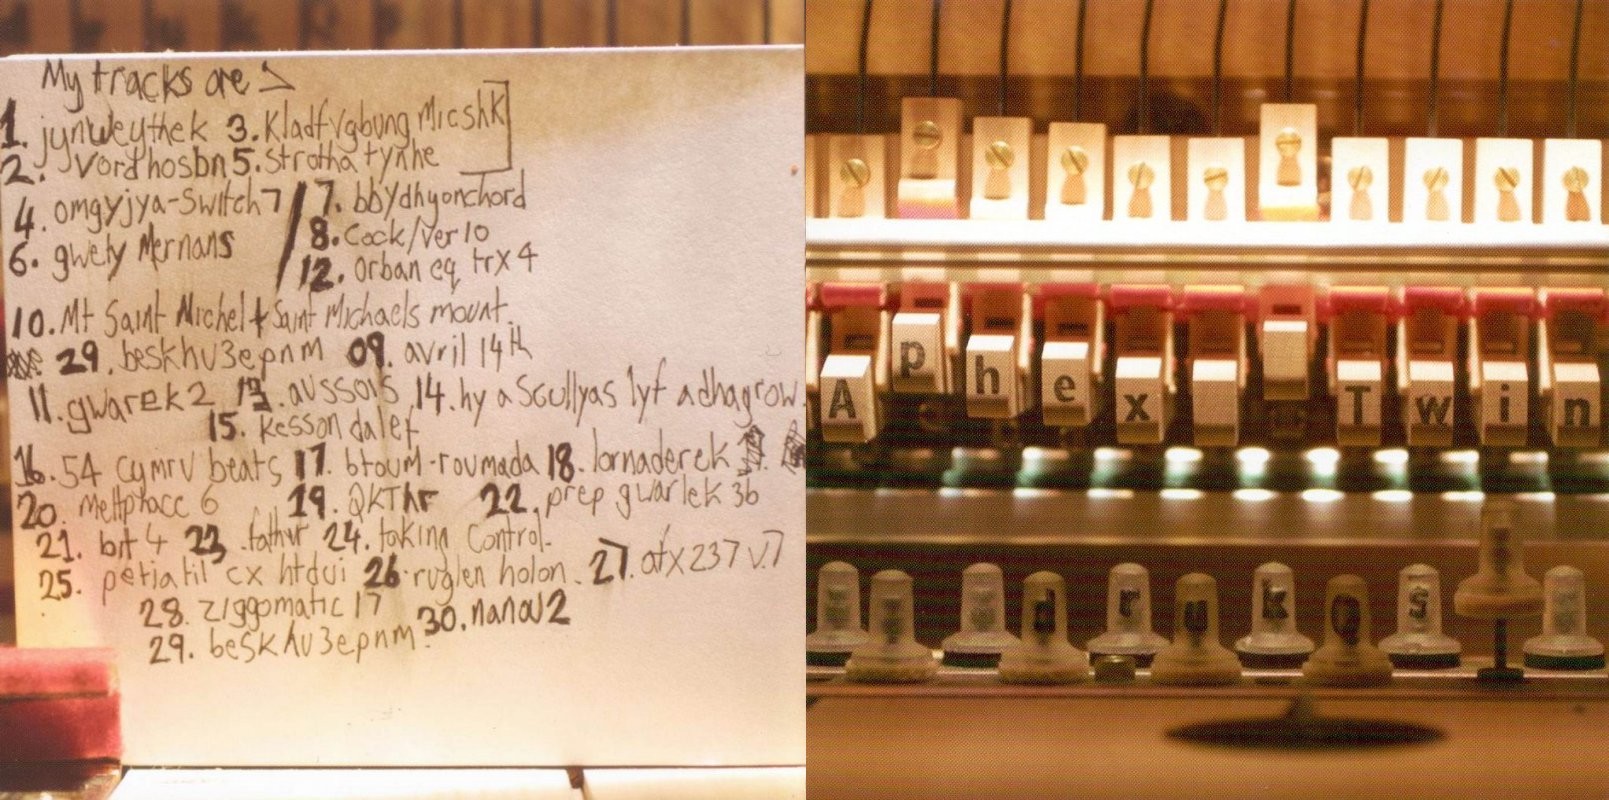 My tracks are >
1. jynweythek 3. Kladfvgbung Micshk
2. Vordhosbn 5. Strotha tynhe
4. omgyjya-Switch 7 / 7. bbydhyonchord
6. gwety Mernans 8. Cock/ver 10
12. Orban eq trx 4
10. Mt Saint Michel + Saint Michaels mount.
29. beskhu3epnm 09. avril 14th
11. gwarek 2 13. aussois 14. hy a Scullyas lyf adhagrow.
15. Kesson dalef
16. 54 Cymru beats 17. btoum-roumada 18. lornaderek
20 meltphace 6 19. QKThr 22. prep gwarlek 3b
21. bit 4 23 .father 24. taking Control.
25. petiatil cx htdui 26. ruglen holon. 27. afx237 v.7
28. ziggomatic 17 30. nanou2
29. beskhu3epnm.
A p h e x T w i n
d r u k Q s